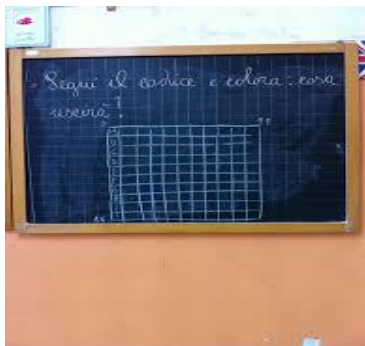 Segui il codice e colora: cosa
uscirà?